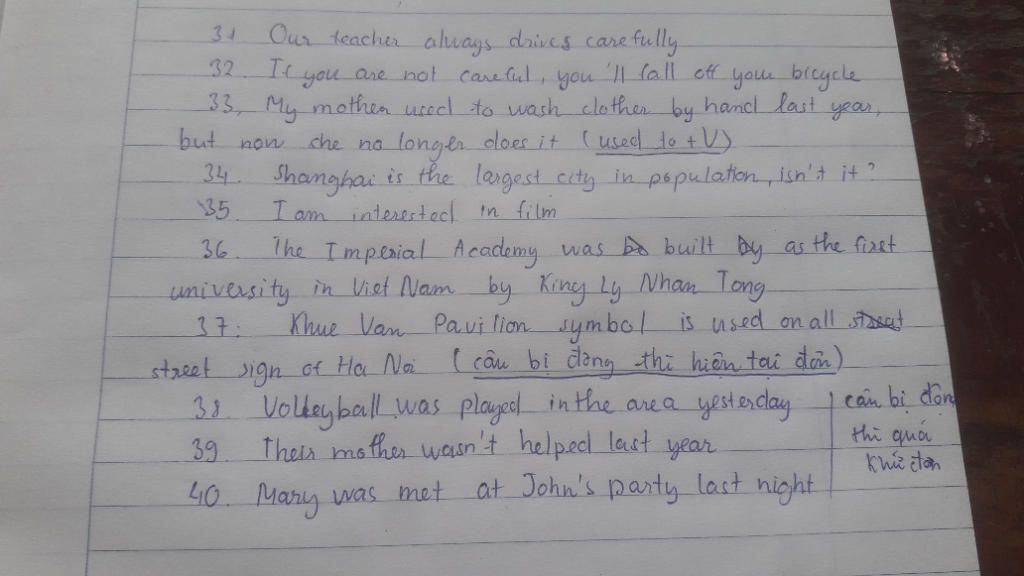 31 Our teacher always drives carefully
32. If you are not careful, you'll fall off your bicycle
33, My mother used to wash clother by hand last year,
but now she no longer does it (used to + V)
34. Shanghai is the largest city in population, isn't it?
35 I am interested in film
36. The Imperial Academy was built as the first
university in Viet Nam by King Ly Nhan Tong
37: Khue Van Pavilion symbol is used on all
street sign of Ha Noi (câu bị động thì hiện tại đơn)
38 Volleyball was played in the area yesterday
câu bị động
39. Their mother wasn't helped last year
thì quá
khứ đơn
40. Mary was met at John's party last night